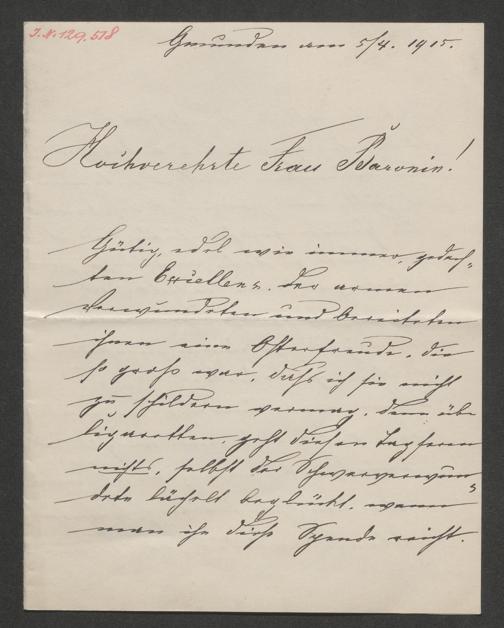 J.N. 129.578
Gmunden am 5/4. 1915.
Hochverehrte Frau Baronin!
Gütig, edel wie immer, gedach-
ten Excellenz der armen
Verwundeten und bereiteten
ihnen eine Osterfreude, die
so groß war, daß ich sie nicht
zu schildern vermag, denn über
Cigaretten, geht diesen Tapferen
nichts, selbst der Schwerverwun-
dete lächelt beglückt, wenn
man ihm diese Spende reicht.